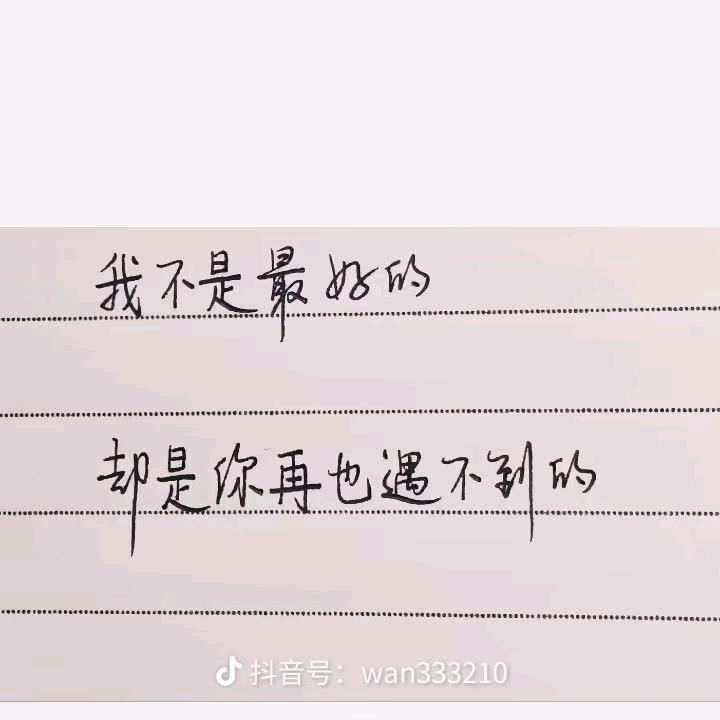 我不是最好的
却是你再也遇不到的
抖音号：wan333210